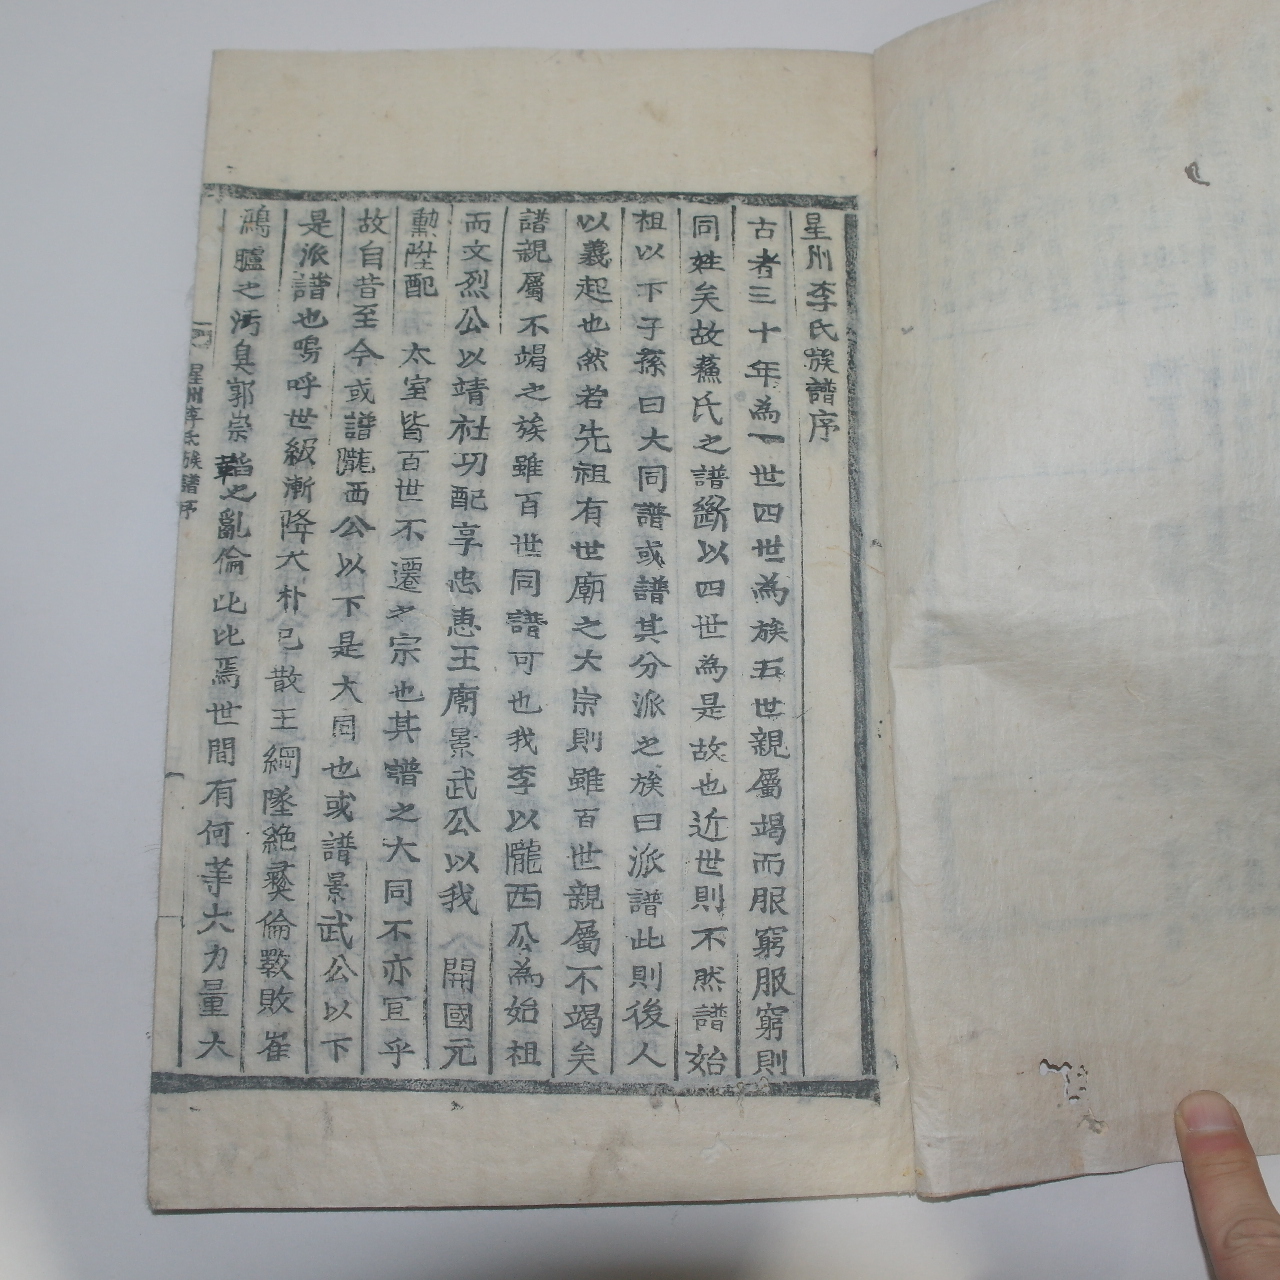 星州李氏族譜序
古者三十年為一世四世為族五世親屬竭而服窮服窮則
同姓矣故蘓氏之譜斷以四世為是故也近世則不然譜始
祖以下子孫曰大同譜或譜其分派之族曰派譜此則後人
以義起也然若先祖有世廟之大宗則雖百世親屬不竭矣
譜親屬不竭之族雖百世同譜可也我李以隴西公為始祖
而文烈公以靖社功配享忠惠王廟景武公以我 開國元
勳陞配 太室皆百世不遷之宗也其譜之大同不亦宜乎
故自昔至今或譜隴西公以下是大同也或譜景武公以下
是派譜也嗚呼世級漸降大朴已散王綱墜絶彜倫斁敗崔
鴻臚之汚臭郭崇韜之亂倫比比焉世間有何等大力量大
星州李氏族譜序